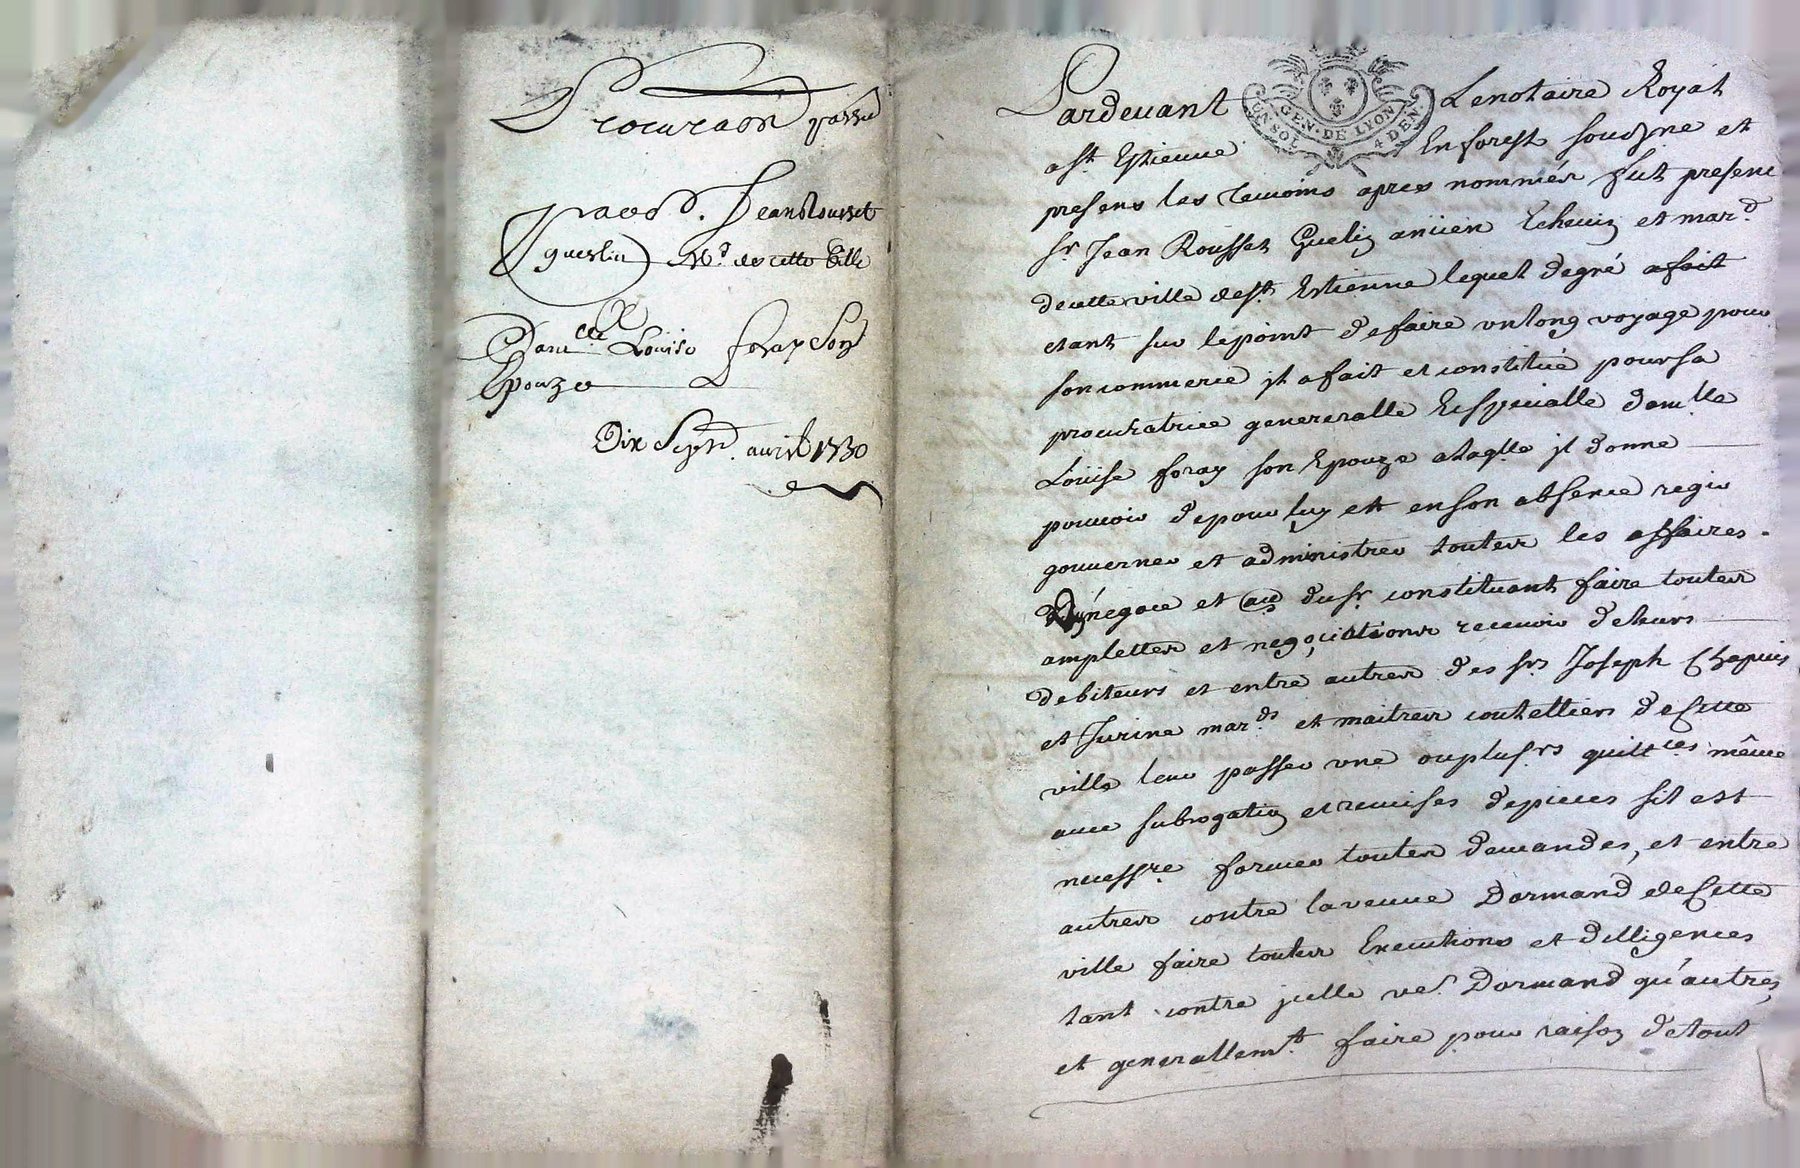 Procura[ti]on passée
par Sr. Jean Rousset
Gueslin Md. de cette ville
Dam.lle Louise foray Son
Epouze
Dix Sept avril 1730
Pardevant Le notaire Royal
GEN. DE LYON
4 DEN.
a St. Estienne En forest soussigne et
presens les temoins apres nommés fut present
Sr Jean Rousset Guelin ancien Echevin et mar.d
de cette ville de St. Estienne lequel de gré a fait
etant sur le point de faire un long voyage pour
son commerce il a fait et constitué pour sa
procuratrice genereralle Et specialle dam.lle
Loüise foray son Epouze a laqlle il donne
pouvoir de pour luy et en son absence regir
gouverner et administrer toutes les affaires
negoce et du Sr constituant faire toutes
amplettes et negociations recevoir de leurs
debiteurs et entre autres des Srs Joseph Chapuis
et Jurine mar.ds et maitres coutelliers de Cette
ville leur passer une ou plusrs quittces même
avec subrogation et remises de pieces sil est
necessre former toutes demandes, et entre
autres contre la veuve Dormand de Cette
ville faire toutes Executions et dilligences
tant contre jcelle ve. Dormand qu'autres,
et generallemt. faire pour raison de tout